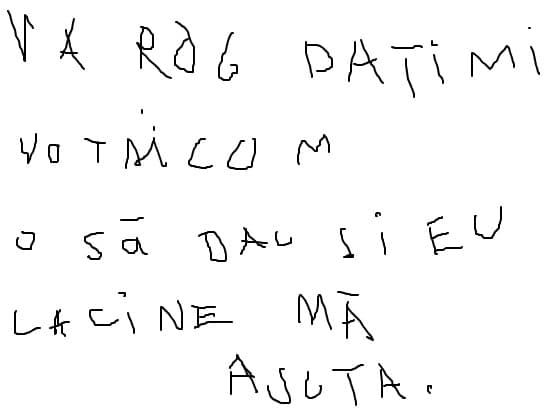 VA ROG DATIMI
VOT NICOM
O SĀ DAU SI EU
LA CINE MĀ
AJUTA.